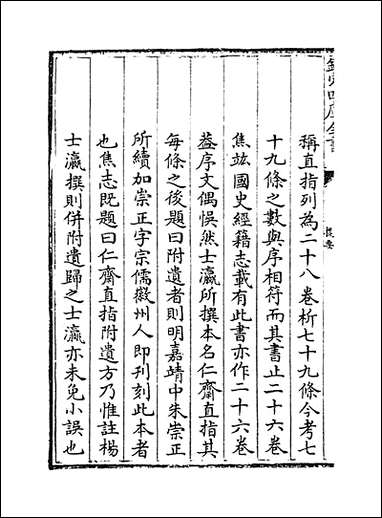 欽定四庫全書
提要
稱直指列為二十八卷析七十九條今考七
十九條之數與序相符而其書止二十六卷
焦竑國史經籍志載有此書亦作二十六卷
葢序文偶悞然士瀛所撰本名仁齋直指其
每條之後題曰附遺者則明嘉靖中朱崇正
所續加崇正字宗儒徽州人即刋刻此本者
也焦志既題曰仁齋直指附遺方乃惟註楊
士瀛撰則併附遺歸之士瀛亦未免小誤也